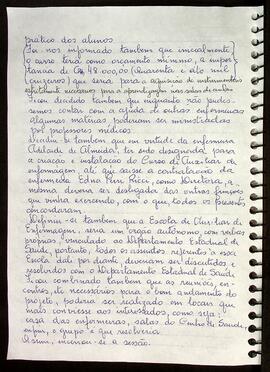 prático dos alunos.
Foi nos informado também que inicialmente,
o curso teria como orçamento mínimo, a impor-
tância de Cr$ 48.000,00 (Quarenta e oito mil
cruzeiros) que seria para a aquisição de instrumentos
estritamente necessários para a aprendizagem nas salas de aulas.
Ficou decidido também que enquanto não pudes-
semos contar com a ajuda de outras enfermeiras
algumas matérias, poderiam ser ministradas
por professores médicos.
Decidiu-se também que em virtude da enfermeira
de Almeida, ter sido designada para
a criação e instalação do Curso de Auxiliar de
enfermagem, ali que disse a
enfermeira Edna como Diretora, a
mesma deveria ser desligada das outras funções
que vinha exercendo, com o que todos os presentes
concordaram.
Definiu-se também que a Escola de Auxiliar de
Enfermagem, seria um órgão autônomo, com verbas
próprias, vinculado ao Departamento Estadual de
Saúde, portanto, todos os assuntos referentes a essa
Escola dali por diante deveriam ser discutidos e
resolvidos com o Departamento Estadual de Saúde.
Ficou combinado também que as reuniões, en-
contros, etc necessários para o bom andamento do
projeto, poderia ser realizado em locais que
mais convesse aos interessados, como seja:
casa das enfermeiras, salas do Centro de Saúde,
enfim, o grupo é que resolveria.
Assim, encerrou-se a sessão.